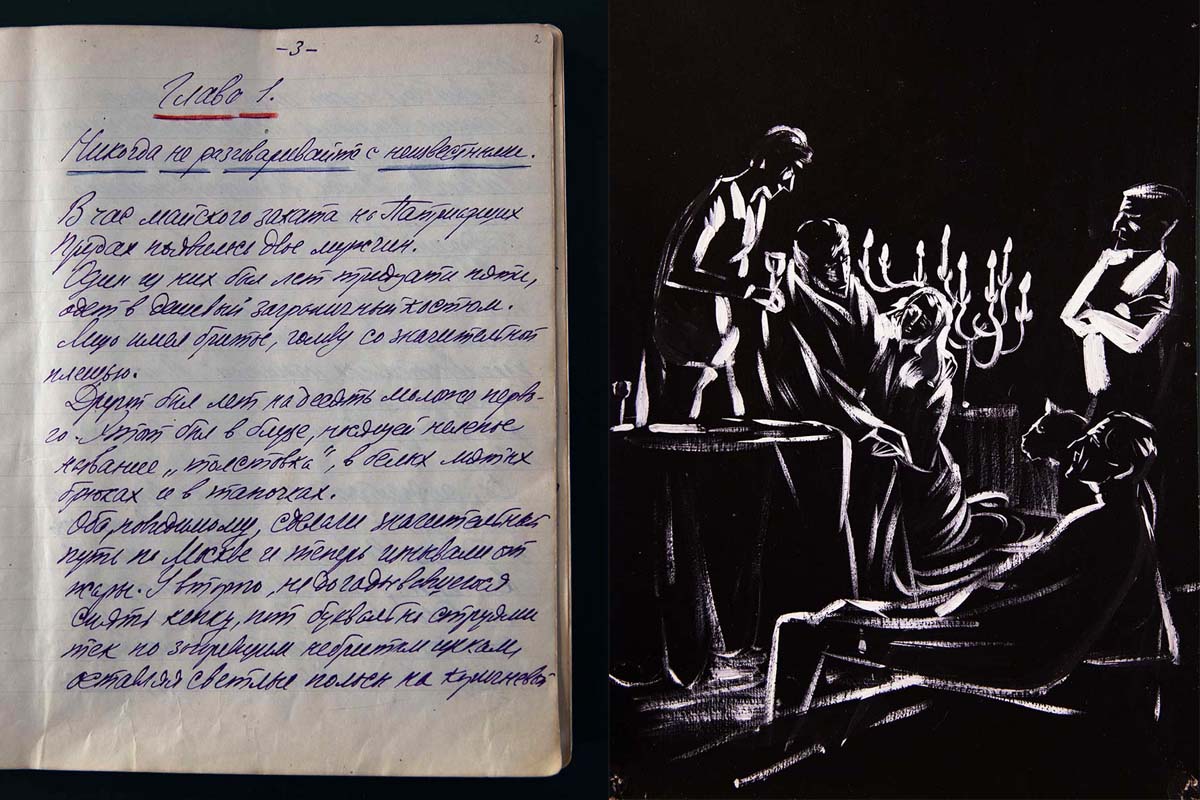 -3-
2
Глава 1.
Никогда не разговаривайте с неизвестными.
В час майского заката на Патриарших
Прудах появились двое мужчин.
Один из них был лет тридцати пяти,
одет в дешевый заграничный костюм.
Лицо имел бритое, голову со значительной
плешью.
Другой был лет на десять моложе перво-
го. Этот был в блузе, носящей нелепое
название „толстовка", в белых мятых
брюках и в тапочках.
Оба, повидимому, сделали значительный
путь по Москве и теперь изнывали от
жары. У второго, не догадывавшегося
снять кепку, пот буквально струями
тек по небритым щекам,
оставляя светлые полосы на коричневой